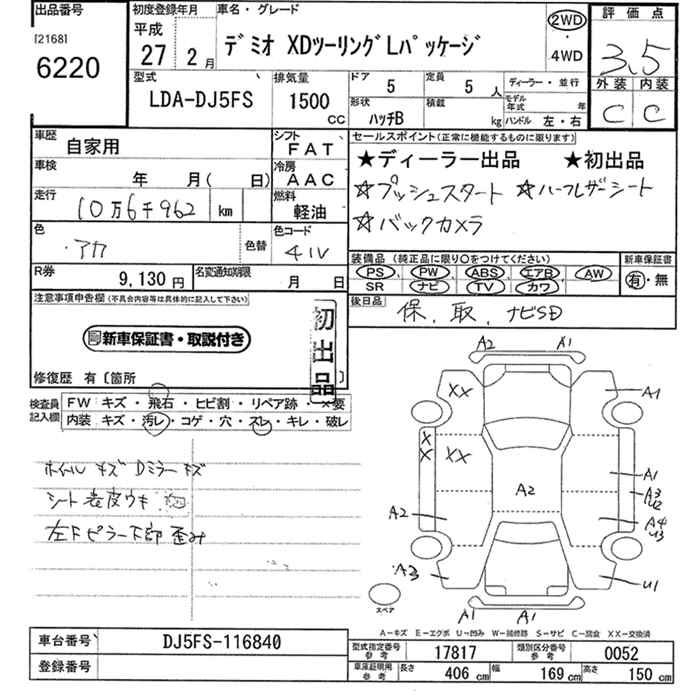 出品番号
[2168]
6220
初度登録年月
平成
27年 2月
車名・グレード
デミオ XDツーリングLパッケージ
2WD
・
4WD
評価点
3.5
外装 内装
C C
型式
LDA-DJ5FS
排気量
1500
CC
ドア
5
定員
5 人
ディーラー・並行
形状
ハッチB
積載
kg
モデル年式 年
ハンドル 左・右
車歴
自家用
シフト
FAT
車検
年 月( 日)
冷房
AAC
走行
10万6千962 km
燃料
軽油
色
アカ
色替
色コード
41V
R券
9,130 円
名変通知期限
月 日
セールスポイント(正常に機能するものに限ります)
★ディーラー出品 ★初出品
☆プッシュスタート ☆ハーフレザーシート
☆バックカメラ
装備品(純正品に限り○をつけてください)
PS PW ABS エアB AW
SR ナビ TV カワ
新車保証書
有・無
後日品
保、取、ナビSD
注意事項申告欄(不具合内容等は具体的に記入して下さい)
新車保証書・取説付き
初出品
修復歴 有〔箇所
検査員記入欄
FW キズ・飛石・ヒビ割・リペア跡・×要
内装 キズ・汚レ・コゲ・穴・スレ・キレ・破レ
ホイルキズ Dミラーキズ
シート表皮ウキ
左Fピラー下部歪み
A2 A1
XX A1
X
X XX
A1
A3
U2
A2
A2
A4
U3
A3 U1
スペア
A1 A1
A-キズ E-エクボ U-凹み W-補修跡 S-サビ C-腐食 XX-交換済
車台番号
DJ5FS-116840
登録番号
型式指定番号
参考
17817
類別区分番号
参考
0052
車庫証明用
参考
長さ
406 cm
幅
169 cm
高さ
150 cm